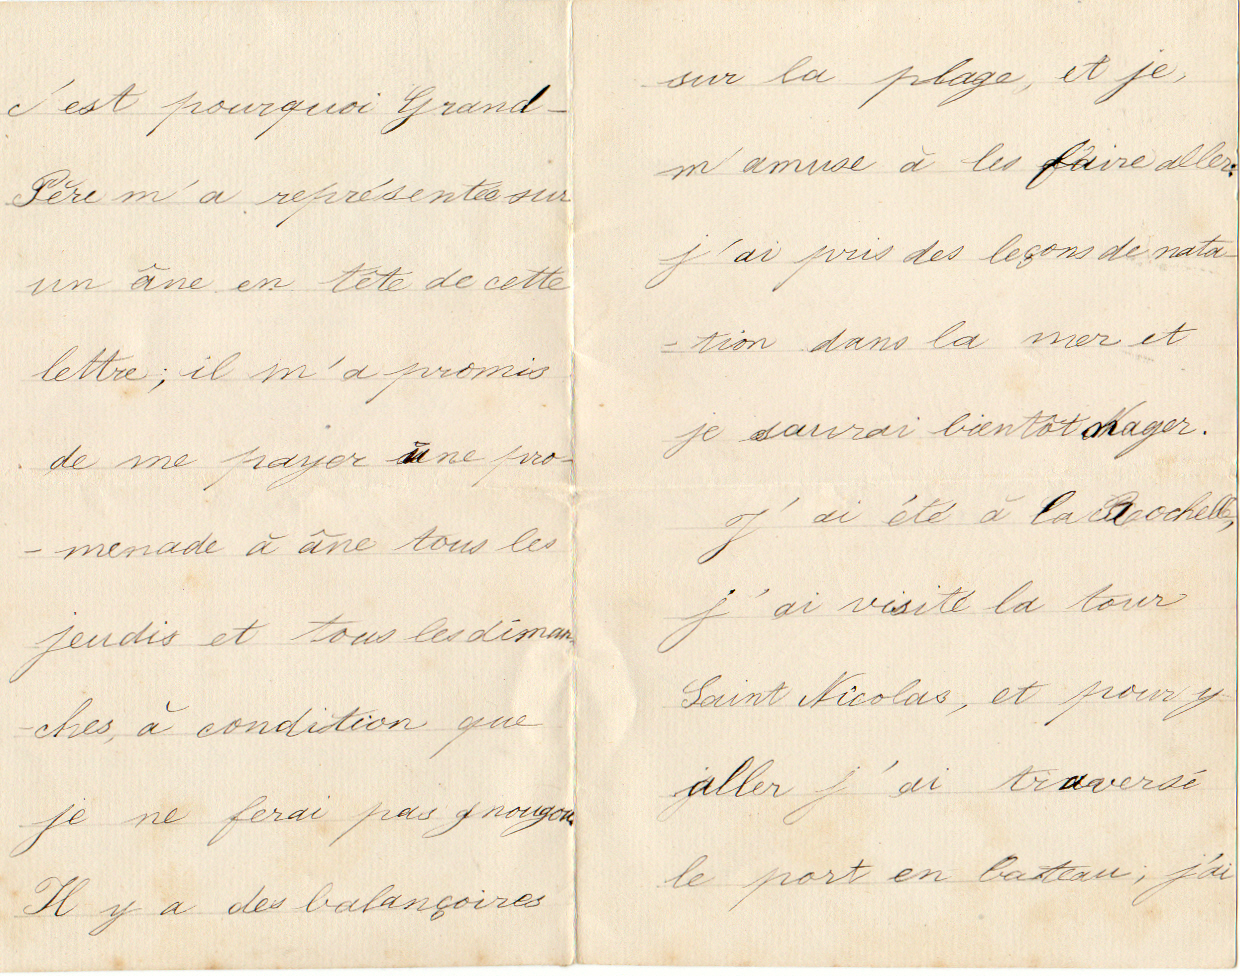 c'est pourquoi Grand-
Père m'a représentée sur
un âne en tête de cette
lettre; il m'a promis
de me payer une pro-
-menade à âne tous les
jeudis et tous les diman-
-ches, à condition que
je ne ferai pas gnougnou.
Il y a des balançoires
sur la plage, et je,
m'amuse à les faire aller:
j'ai pris des leçons de nata-
-tion dans la mer et
je saurai bientôt Nager.
J'ai été à la Rochelle,
j'ai visité la tour
Saint Nicolas, et pour y
aller j'ai traversé
le port en bateau; j'ai